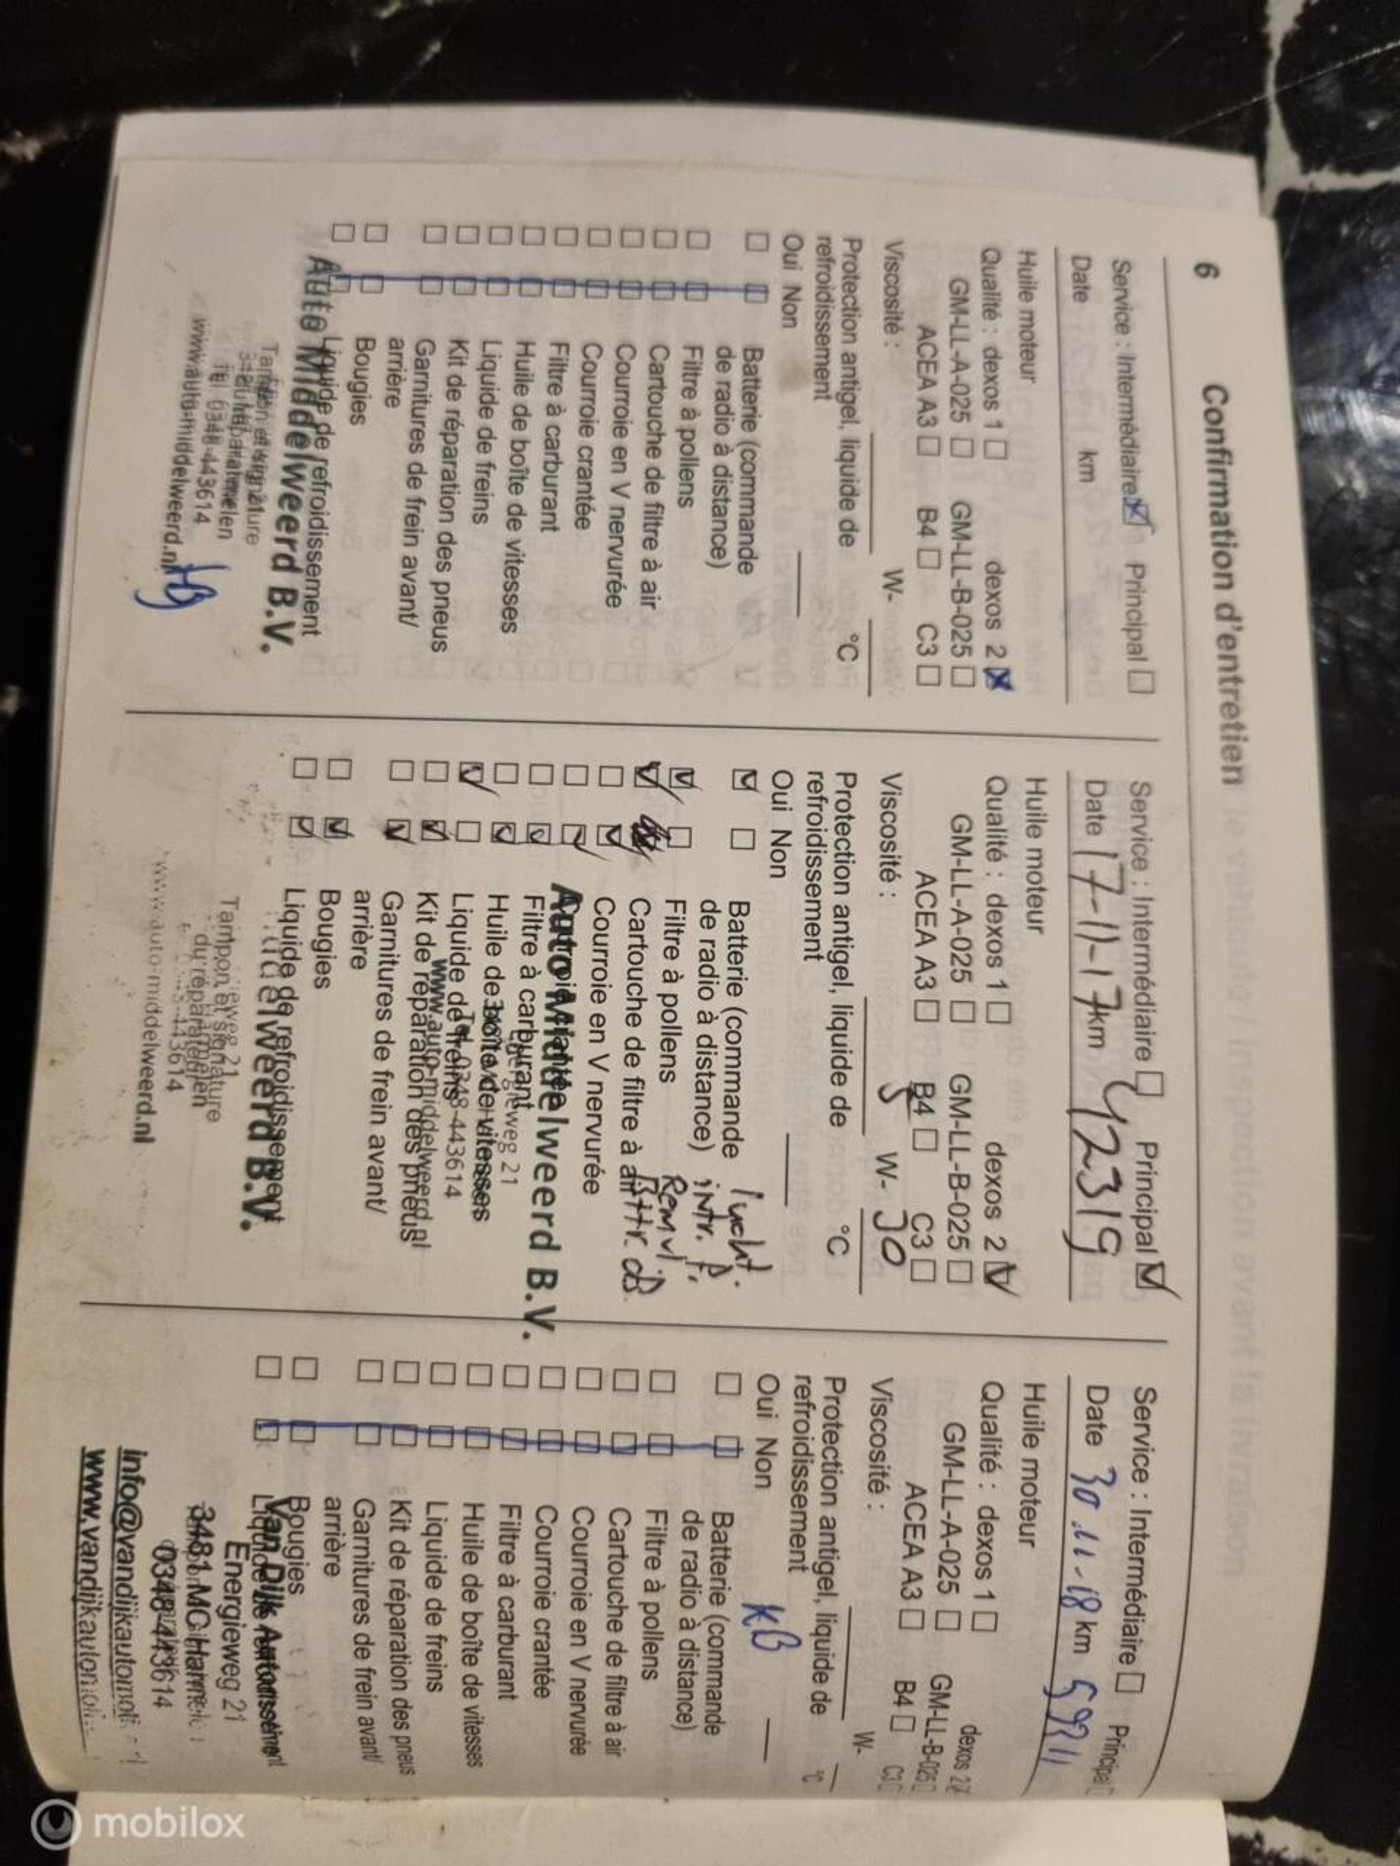 6 Confirmation d'entretien
Service : Intermédiaire Principal
Date km
Huile moteur
Qualité : dexos 1 dexos 2
GM-LL-A-025 GM-LL-B-025
ACEA A3 B4 C3
Viscosité : W-
Protection antigel, liquide de
refroidissement °C
Oui Non
Batterie (commande
de radio à distance)
Filtre à pollens
Cartouche de filtre à air
Courroie en V nervurée
Courroie crantée
Filtre à carburant
Huile de boîte de vitesses
Liquide de freins
Kit de réparation des pneus
Garnitures de frein avant/
arrière
Bougies
Liquide de refroidissement
Auto Middelweerd B.V.
Tampon et signature
Tel. 0348-443614
www.auto-middelweerd.nl
Service : Intermédiaire Principal
Date 17-11-17 km 42319
Huile moteur
Qualité : dexos 1 dexos 2
GM-LL-A-025 GM-LL-B-025
ACEA A3 B4 C3
Viscosité : 5 W- 30
Protection antigel, liquide de
refroidissement °C
Oui Non
Batterie (commande
de radio à distance)
Filtre à pollens
Cartouche de filtre à air
Courroie en V nervurée
Courroie crantée
Filtre à carburant
Huile de boîte de vitesses
Liquide de freins
Kit de réparation des pneus
Garnitures de frein avant/
arrière
Bougies
Liquide de refroidissement
Auto Middelweerd B.V.
Tel. 0348-443614
www.auto-middelweerd.nl
Tampon et signature
du réparateur
www.auto-middelweerd.nl
Service : Intermédiaire Principal
Date 30-11-18 km
Huile moteur
Qualité : dexos 1 dexos 2
GM-LL-A-025 GM-LL-B-025
ACEA A3 B4 C3
Viscosité : W-
Protection antigel, liquide de
refroidissement °C
Oui Non KB
Batterie (commande
de radio à distance)
Filtre à pollens
Cartouche de filtre à air
Courroie en V nervurée
Courroie crantée
Filtre à carburant
Huile de boîte de vitesses
Liquide de freins
Kit de réparation des pneus
Garnitures de frein avant/
arrière
Bougies
Van Dijk
Energieweg 21
3481 MC Harmelen
0348-443614
mobilox